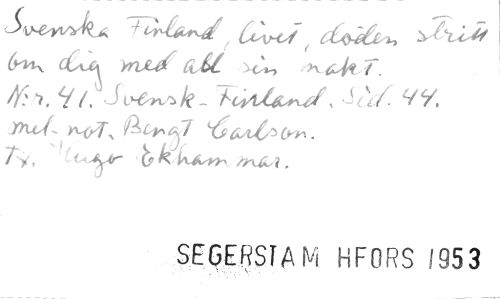 Svenska Finland, livet, döden stritt
om dig med all sin makt.
N:r. 41. Svensk-Finland. Sid. 44.
mel-not. Bengt Carlson.
tx. Hugo Ekhammar.
SEGERSTAM HFORS 1953